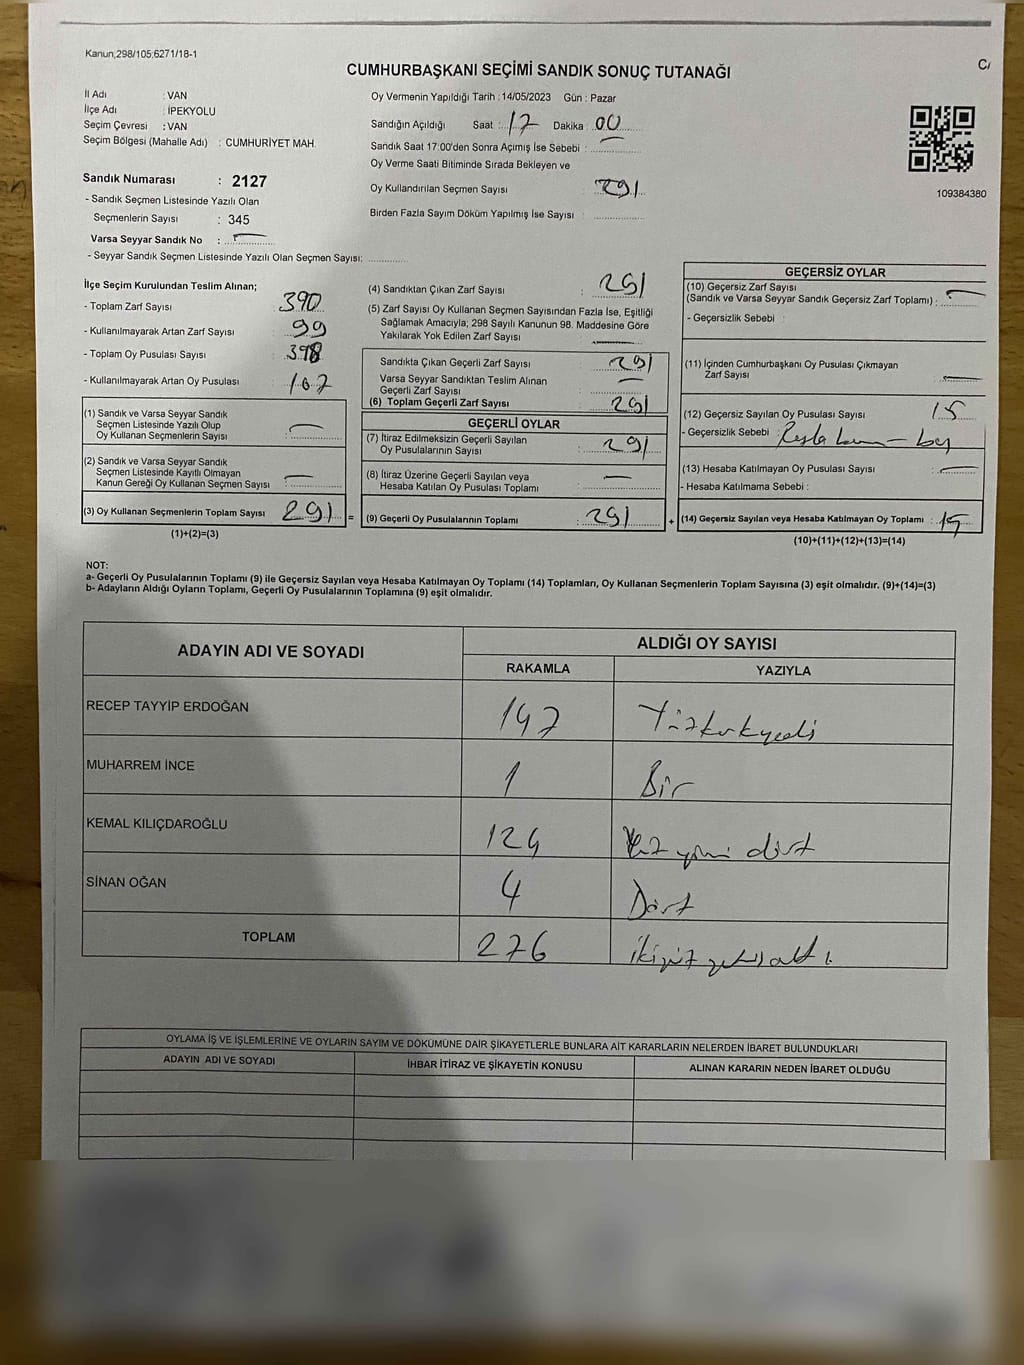 Kanun;298/105;6271/18-1
CUMHURBAŞKANI SEÇİMİ SANDIK SONUÇ TUTANAĞI
İl Adı : VAN
İlçe Adı : İPEKYOLU
Seçim Çevresi : VAN
Seçim Bölgesi (Mahalle Adı) : CUMHURİYET MAH.
Oy Vermenin Yapıldığı Tarih :14/05/2023 Gün : Pazar
Sandığın Açıldığı Saat : 17 Dakika 00
Sandık Saat 17:00'den Sonra Açımış İse Sebebi :
Oy Verme Saati Bitiminde Sırada Bekleyen ve
Oy Kullandırılan Seçmen Sayısı 291
Birden Fazla Sayım Döküm Yapılmış İse Sayısı :
109384380
Sandık Numarası : 2127
- Sandık Seçmen Listesinde Yazılı Olan
Seçmenlerin Sayısı : 345
Varsa Seyyar Sandık No :
- Seyyar Sandık Seçmen Listesinde Yazılı Olan Seçmen Sayısı:
İlçe Seçim Kurulundan Teslim Alınan;
- Toplam Zarf Sayısı 390
- Kullanılmayarak Artan Zarf Sayısı 99
- Toplam Oy Pusulası Sayısı 398
- Kullanılmayarak Artan Oy Pusulası 107
(1) Sandık ve Varsa Seyyar Sandık
Seçmen Listesinde Yazılı Olup
Oy Kullanan Seçmenlerin Sayısı : —
(2) Sandık ve Varsa Seyyar Sandık
Seçmen Listesinde Kayıtlı Olmayan
Kanun Gereği Oy Kullanan Seçmen Sayısı : —
(3) Oy Kullanan Seçmenlerin Toplam Sayısı 291 =
(1)+(2)=(3)
(4) Sandıktan Çıkan Zarf Sayısı : 291
(5) Zarf Sayısı Oy Kullanan Seçmen Sayısından Fazla İse, Eşitliği
Sağlamak Amacıyla; 298 Sayılı Kanunun 98. Maddesine Göre
Yakılarak Yok Edilen Zarf Sayısı —
Sandıkta Çıkan Geçerli Zarf Sayısı : 291
Varsa Seyyar Sandıktan Teslim Alınan
Geçerli Zarf Sayısı : —
(6) Toplam Geçerli Zarf Sayısı : 291
GEÇERLİ OYLAR
(7) İtiraz Edilmeksizin Geçerli Sayılan
Oy Pusulalarının Sayısı : 291
(8) İtiraz Üzerine Geçerli Sayılan veya
Hesaba Katılan Oy Pusulası Toplamı : —
(9) Geçerli Oy Pusulalarının Toplamı : 291 +
GEÇERSİZ OYLAR
(10) Geçersiz Zarf Sayısı
(Sandık ve Varsa Seyyar Sandık Geçersiz Zarf Toplamı) : —
- Geçersizlik Sebebi :
(11) İçinden Cumhurbaşkanı Oy Pusulası Çıkmayan
Zarf Sayısı —
(12) Geçersiz Sayılan Oy Pusulası Sayısı 15
- Geçersizlik Sebebi :
(13) Hesaba Katılmayan Oy Pusulası Sayısı : —
- Hesaba Katılmama Sebebi :
(14) Geçersiz Sayılan veya Hesaba Katılmayan Oy Toplamı : 15
(10)+(11)+(12)+(13)=(14)
NOT:
a- Geçerli Oy Pusulalarının Toplamı (9) ile Geçersiz Sayılan veya Hesaba Katılmayan Oy Toplamı (14) Toplamları, Oy Kullanan Seçmenlerin Toplam Sayısına (3) eşit olmalıdır. (9)+(14)=(3)
b- Adayların Aldığı Oyların Toplamı, Geçerli Oy Pusulalarının Toplamına (9) eşit olmalıdır.
ADAYIN ADI VE SOYADI ALDIĞI OY SAYISI
RAKAMLA YAZIYLA
RECEP TAYYİP ERDOĞAN 147 Yüzkırkyedi
MUHARREM İNCE 1 Bir
KEMAL KILIÇDAROĞLU 124 Yüz yirmi dört
SİNAN OĞAN 4 Dört
TOPLAM 276 ikiyüz yetmişaltı
OYLAMA İŞ VE İŞLEMLERİNE VE OYLARIN SAYIM VE DÖKÜMÜNE DAİR ŞİKAYETLERLE BUNLARA AİT KARARLARIN NELERDEN İBARET BULUNDUKLARI
ADAYIN ADI VE SOYADI İHBAR İTİRAZ VE ŞİKAYETİN KONUSU ALINAN KARARIN NEDEN İBARET OLDUĞU